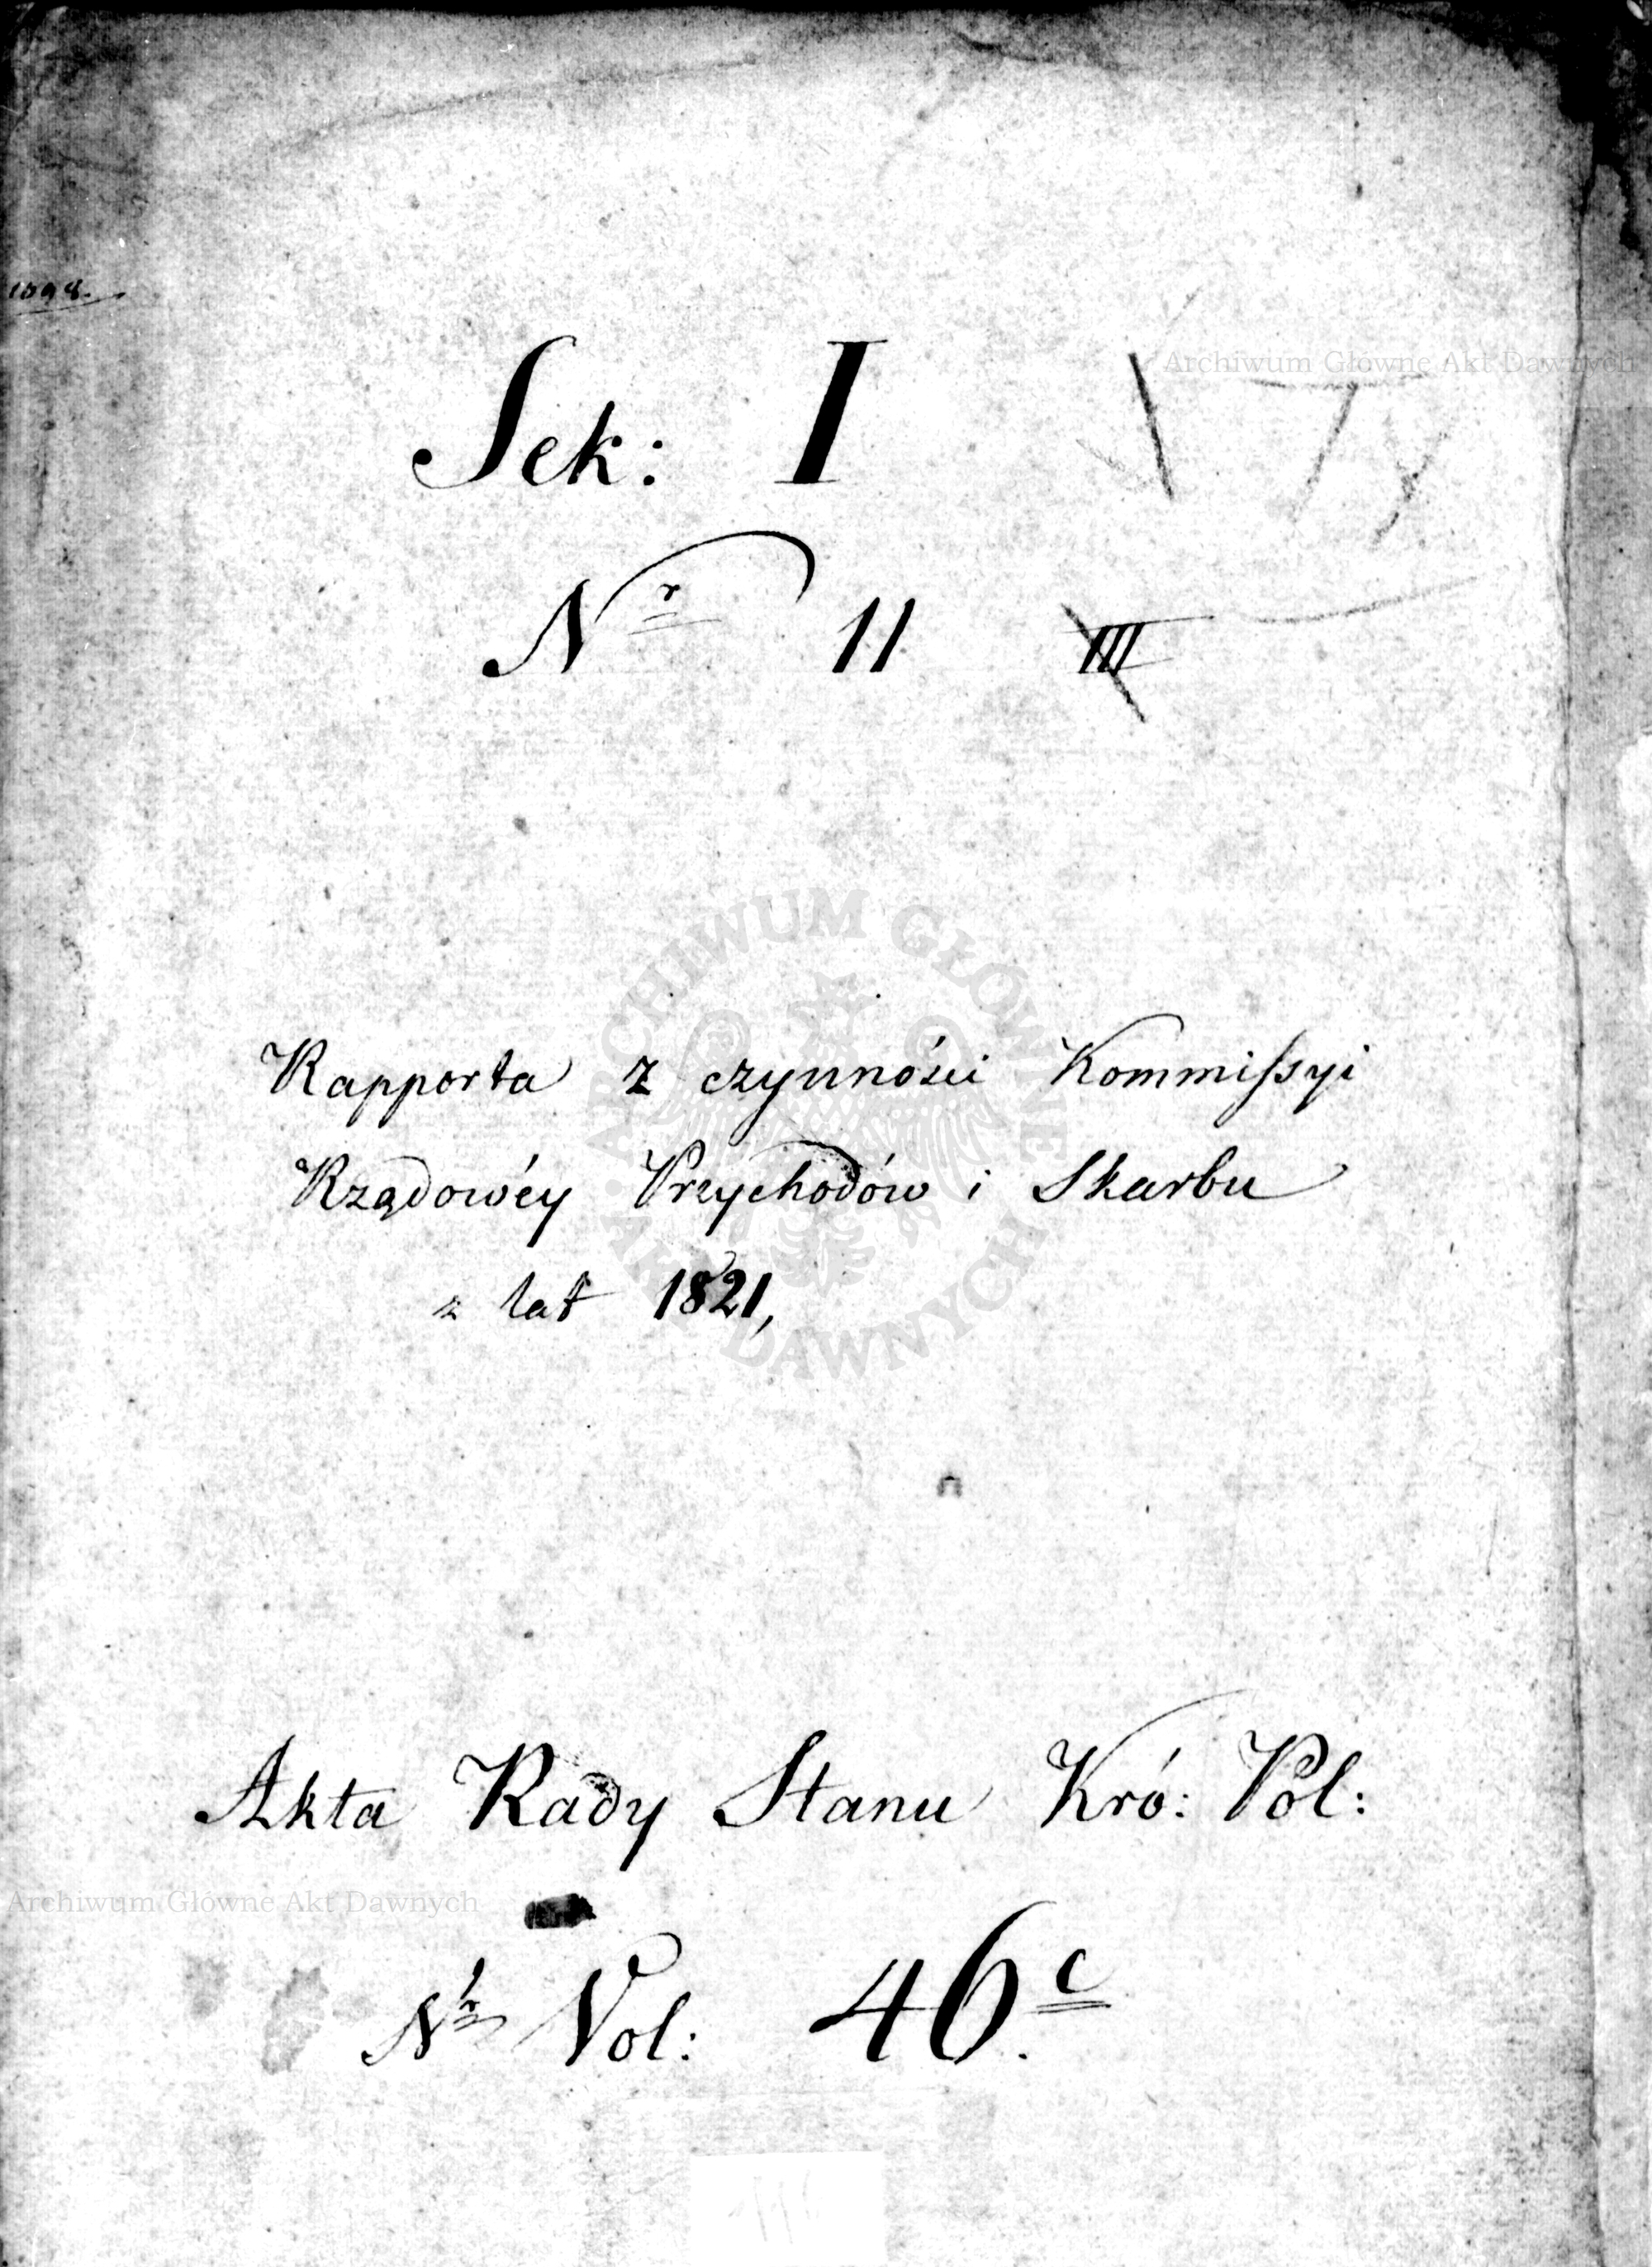 Archiwum Główne Akt Dawnych
Sek: I
Nr 11 III
ARCHIWUM GŁÓWNE AKT DAWNYCH
Rapporta z czynności Kommissyi
Rządowéy Przychodów i Skarbu
z lat 1821,
Akta Rady Stanu Kró: Pol:
Archiwum Główne Akt Dawnych
Nr Vol: 46.c